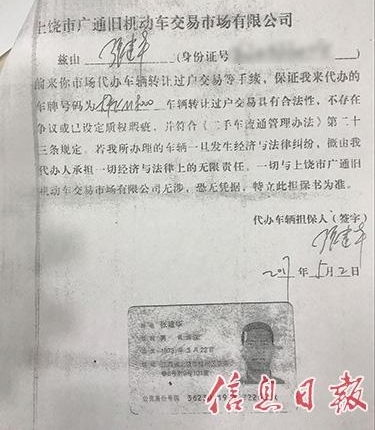 上饶市广通旧机动车交易市场有限公司
兹由 张建华 (身份证号
前来你市场代办车辆转让过户交易等手续，保证我来代办的
车牌号码为 车辆转让过户交易具有合法性，不存在
争议或已设定质权瑕疵，并符合《二手车流通管理办法》第二十
三条规定。若我所办理的车辆一旦发生经济与法律纠纷，概由我
代办人承担一切经济与法律上的无限责任。一切与上饶市广通旧
机动车交易市场有限公司无涉，恐无凭据，特立此担保书为准。
代办车辆担保人（签字）
张建华
2017 年 5 月 2 日
姓名 张建华
公民身份号码
信息日报